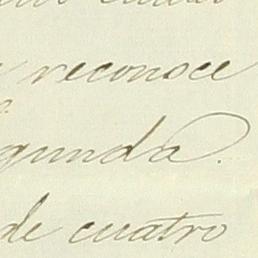 reconoce
gunda.
de cuatro